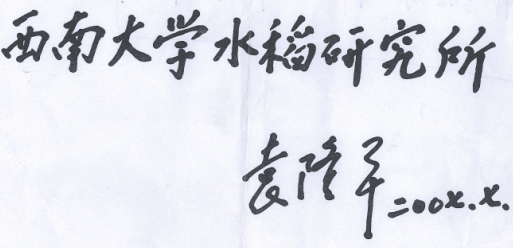 西南大学水稻研究所
袁隆平 二00x.x.